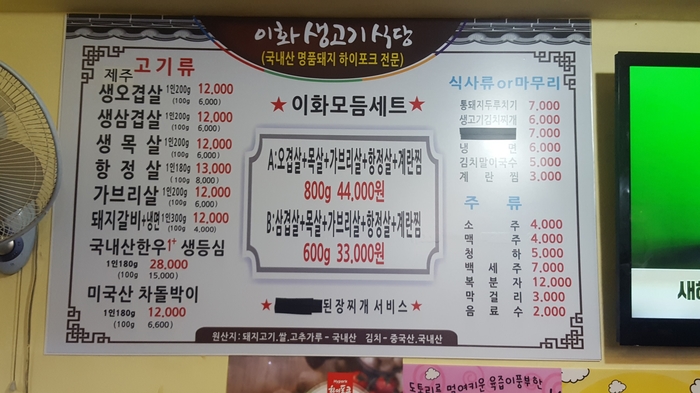 이화 생고기 식당
(국내산 명품돼지 하이포크 전문)
고기류
제주
생오겹살 1인200g 12,000
(100g 6,000)
생삼겹살 1인200g 12,000
(100g 6,000)
생목살 1인200g 12,000
(100g 6,000)
항정살 1인180g 13,000
(100g 8,000)
가브리살 1인200g 12,000
(100g 6,000)
돼지갈비+냉면 1인300g 12,000
(100g 4,000)
국내산한우1+ 생등심
1인180g 28,000
(100g 15,000)
미국산 차돌박이
1인180g 12,000
(100g 6,600)
★이화모듬세트★
A:오겹살+목살+가브리살+항정살+계란찜
800g 44,000원
B:삼겹살+목살+가브리살+항정살+계란찜
600g 33,000원
★ 된장찌개 서비스★
식사류or마무리
통돼지두루치기 7,000
생고기김치찌개 6,000
7,000
냉면 6,000
김치말이국수 5,000
계란찜 3,000
주류
소주 4,000
맥주 4,000
청하 5,000
백세주 7,000
복분자 12,000
막걸리 3,000
음료수 2,000
원산지: 돼지고기,쌀,고추가루-국내산 김치-중국산,국내산
새해
도토리로 먹여키운 육즙이풍부한